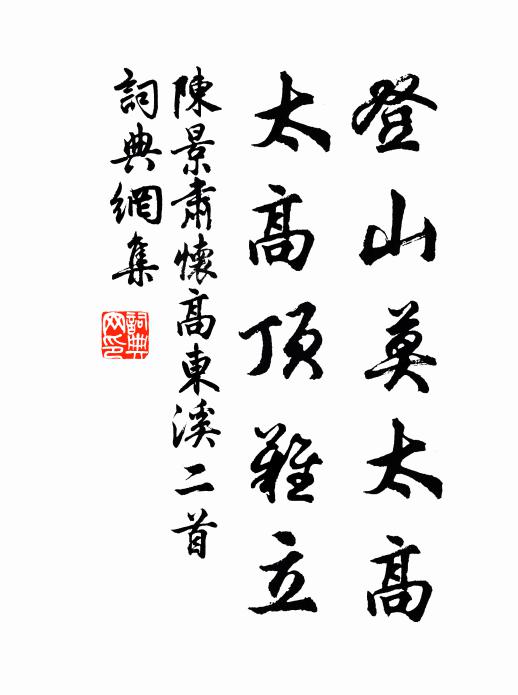 登山莫太高
太高頂難立
陳景肅懷高東溪二首
詞典網集
詞典網印